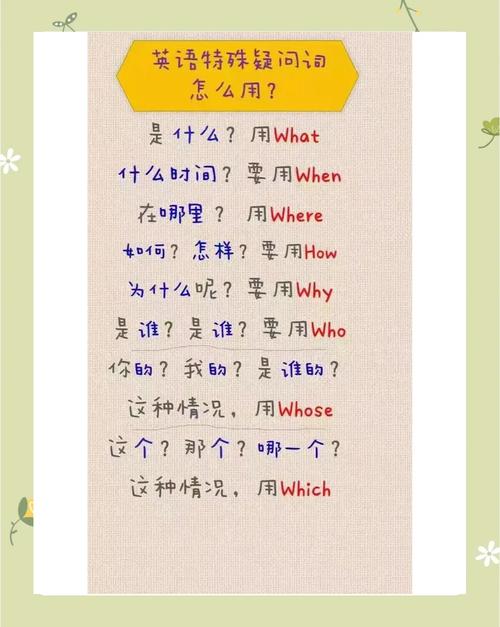 英语特殊疑问词
怎么用？
是什么？用What
什么时间？要用When
在哪里？ 用Where
如何？怎样？要用How
为什么呢？要用Why
是谁？是谁？要用Who
你的？我的？是谁的？
这种情况，用Whose
这个？那个？哪一个？
这种情况，用Which